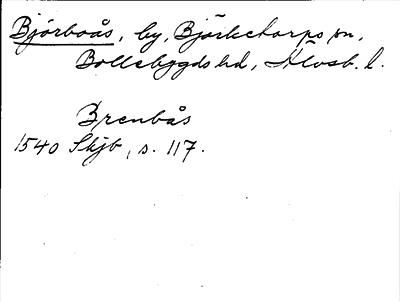 Björboås, by, Björketorps sn,
Bollebygds hd, Älvsb. l.
Brenbås
1540 Skjb, s. 117.